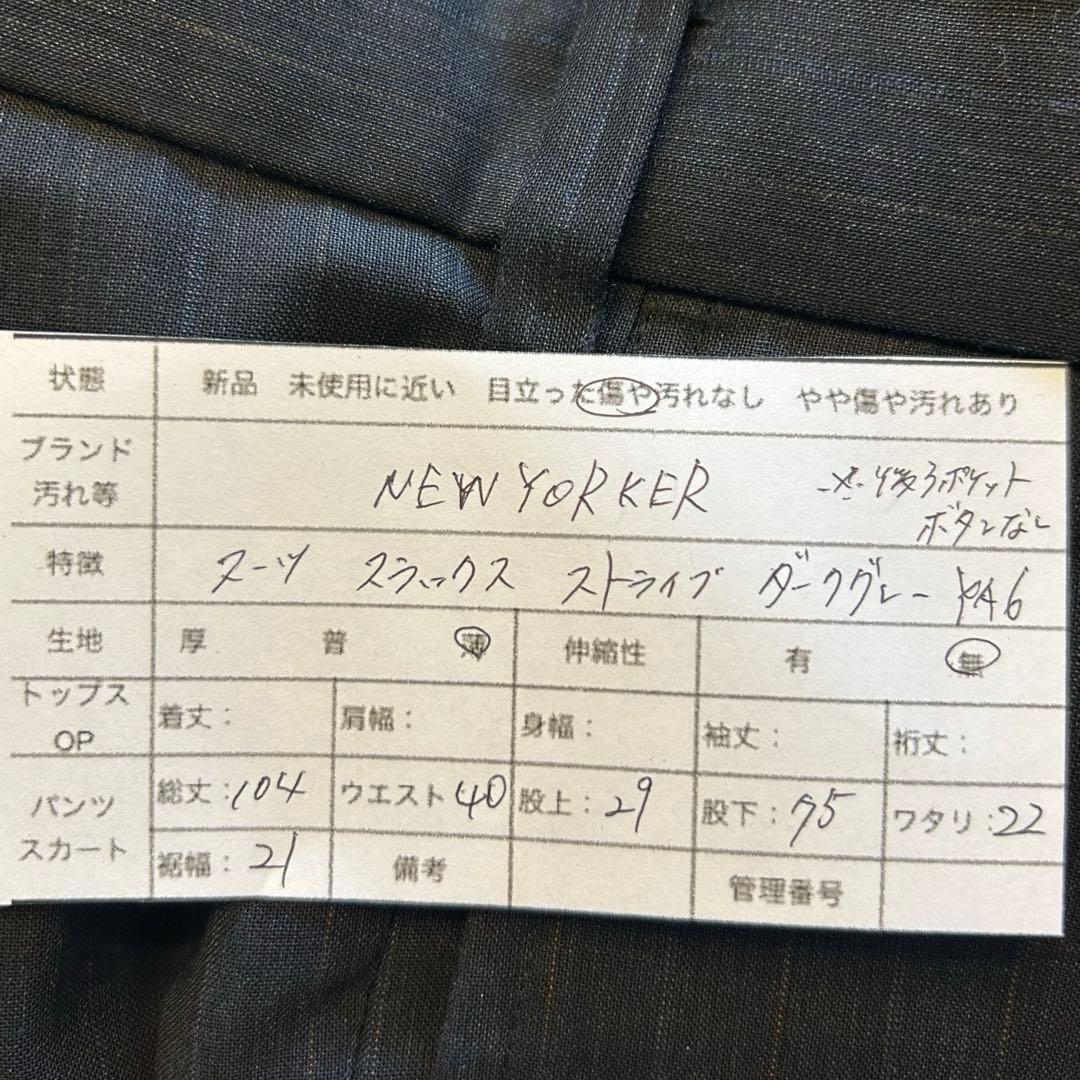 状態 新品 未使用に近い 目立った傷や汚れなし やや傷や汚れあり
ブランド
汚れ等
NEWYORKER
後ろポケット
ボタンなし
特徴 スーツ スラックス ストライプ ダークグレー YA6
生地 厚 普 薄 伸縮性 有 無
トップス
OP
着丈: 肩幅: 身幅: 袖丈: 裄丈:
パンツ
スカート
総丈:104 ウエスト40 股上:29 股下:75 ワタリ:22
裾幅:21 備考 管理番号